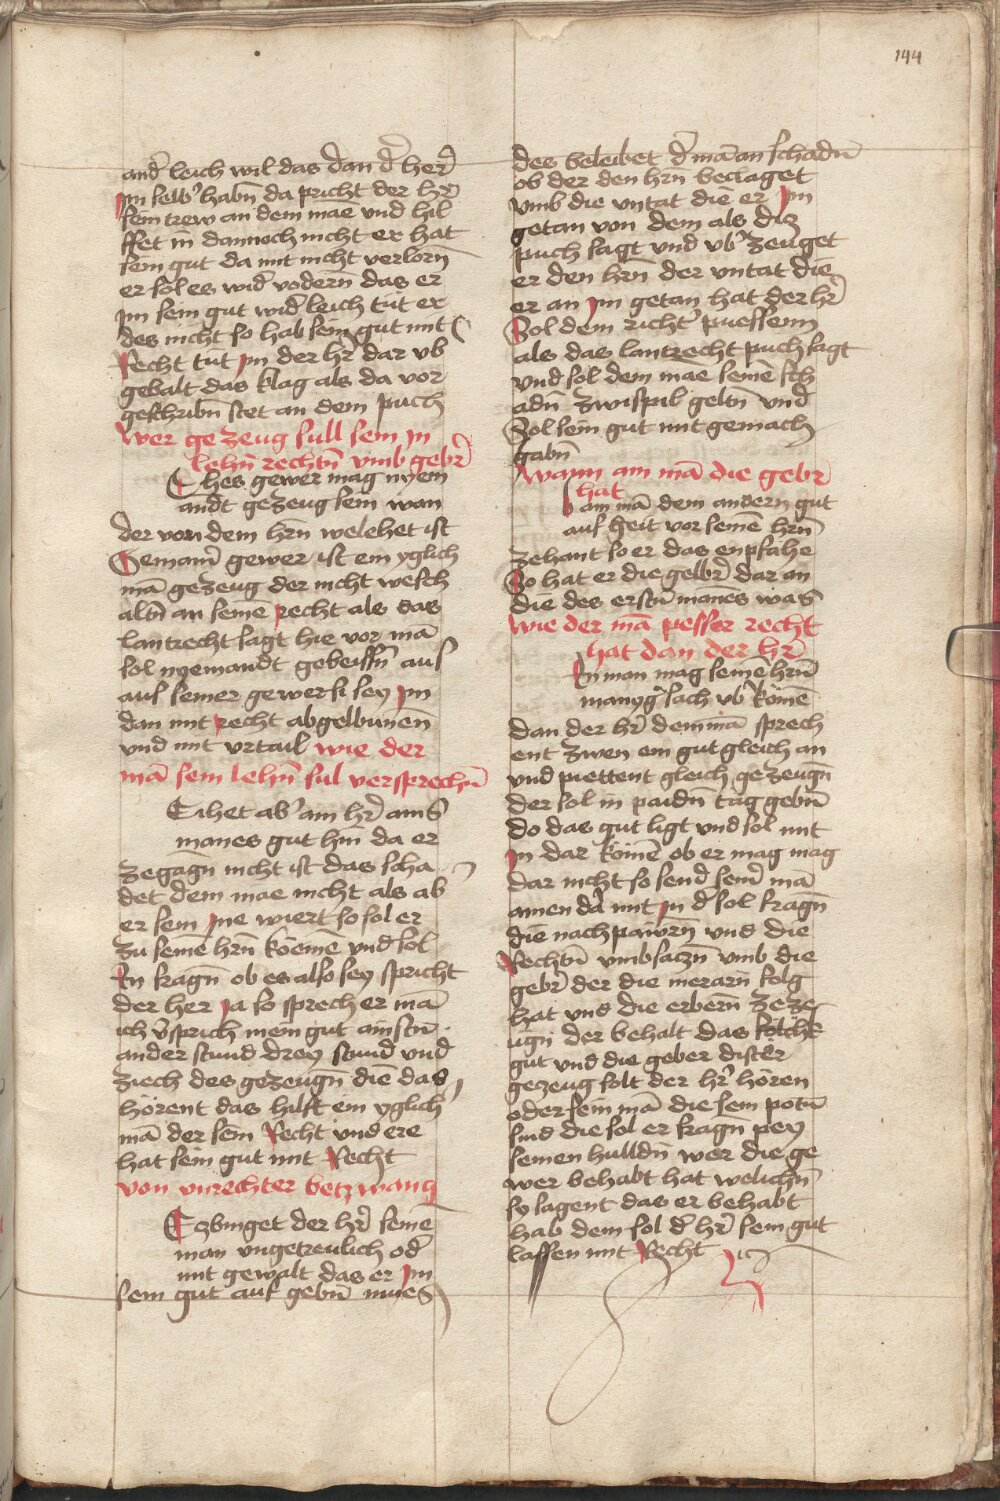 144
and̄ leich wil das dan d̄ her̄
Im selb' habn̄ da pricht der hr̄
sein trew an dem mae vnd hil
ffet in dannoch nicht er hat
sein gut da mit nicht verlorn̄
er sol es wid̄ vodern̄ das er
im sein gut wid̄ leich tut er
des nicht so hab sein gut mit
Recht tut Im der hr̄ dar vb
gebalt das klag als da vor
geschribn̄ stet an dem puch
Wer gezeug sull sein In
lehn̄ rechtn̄ vmb gebr̄
Ehes gewer mag nyem
andt gezeug sein wan
der von dem hrn̄ welehet ist
Gemain̄ gewer ist ein yglich
mā gezeug der nicht wesch
altn̄ an seine recht als das
lantrecht sagt hie vor mā
sol nyemandt geheissn̄ auſ
auſ seiner gewer ſi sey Im
dan mit recht abgelbunen̄
vnd mit vrtail wie der
mā sein lehn̄ sul versprechn̄
Eihet ab' ain hr̄ ains
manes gut hin̄ da er
zegagn̄ nicht ist das scha
det dem mae nicht als ab
er sein Ine wiert so sol er
zu seinē hrn̄ koemē vnd sol
In fragn̄ ob es also sey spricht
der her Ja so sprech er mā
ich v̄sprich mein gut ainstn̄
ander stund drey stund vnd̄
ziech des gezeugn̄ diē das
hörent das hilft ein yglich
mā der sein Recht vnd ere
hat sein gut mit Recht
von vnrechter betzwang
Ezbinget der hr̄ seinē
man vngetreulich od̄
mit gewalt das er Im
sein gut auf gebn̄ mues
des beleibet d̄ mā an schadn̄
ob der den hrn̄ beclaget
vmb die vntat diē er Im
getan von dem als diz
puch sagt vnd vb' zeuget
er den hrn̄ der vntat diē
er an Im getan hat der hr̄
Sol dem richt' puessenn
als das lantrecht puch sagt
vnd sol dem mae seinē sch
adn̄ zwispil geltn̄ vnd̄
Sol sein gut mit gemach
habn̄
Wann ain mā die gebr̄
hat
b ain mā dem andern gut
auf heit vor seinē hrn̄
zehant so er das enpfahe
So hat er die gelbr̄ dar an
diē des erstn̄ manes was
Wie der mā pesser recht
hat dan der hr̄
In man mag seinē hrn̄
manyg' sach vb' komē
dan der hr̄ dem mā sprech
ent zwen ein gut gleich an
vnd piettent gleich gezeugn̄
der sol in paidn̄ tag gebn̄
do das gut ligt vnd sol mit
In dar komē ob er mag mag
dar nicht so send̄ sein̄ mā
ainen da mit In d̄ sol fragn̄
diē nachpawrn̄ vnd die
Rechtn̄ vmbsaczn̄ vmb die
gebr̄ der die merarn̄ folg
hat vnd die erbern̄ zeze
ugn̄ der behalt das solche
gut vnd die geber dister
gezeug solt der hr̄ hören
oder sein mā die sein potn̄
sind die sol er fragn̄ pey
seinen hulldn̄ wer die ge
wer behabt hat welichn̄
sy sagent das er behabt
hab dem sol d̄ hr̄ sein gut
lassen mit Recht